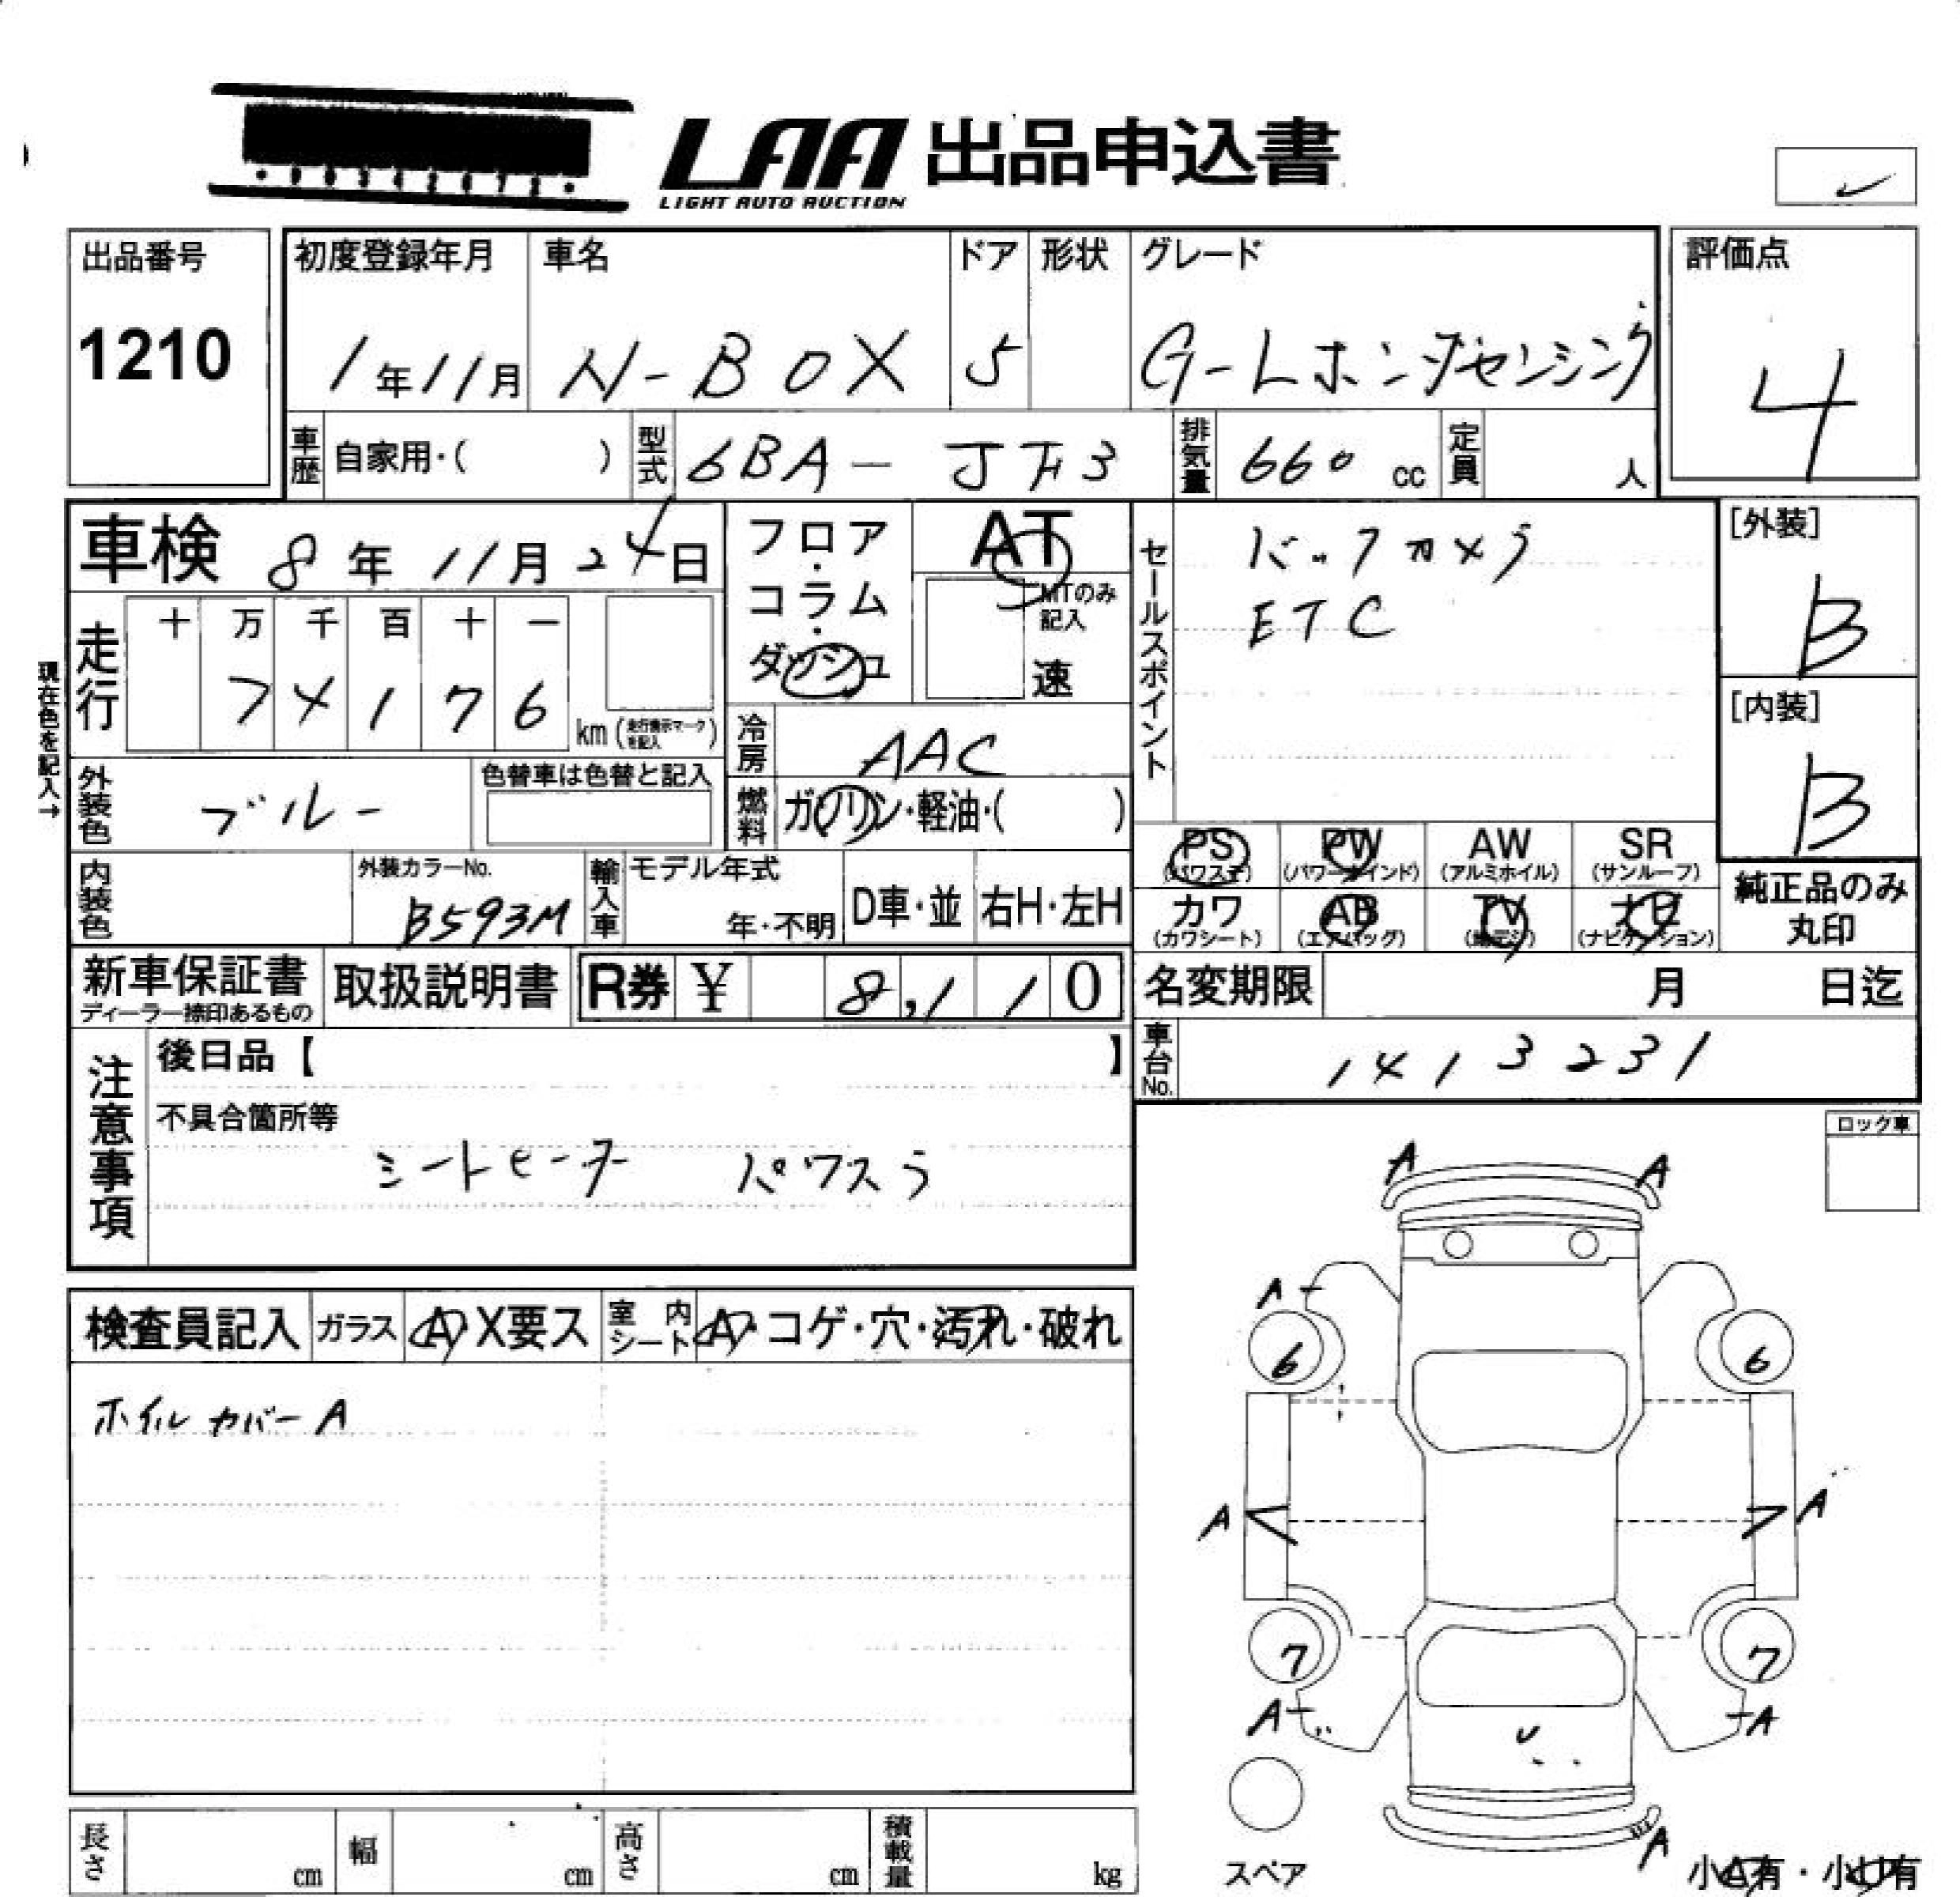 LAA 出品申込書
LIGHT AUTO AUCTION
出品番号 初度登録年月 車名 ドア 形状 グレード 評価点
1210 1年11月 N-BOX 5 G-Lホンダセンシング 4
車歴 自家用・( ) 型式 6BA-JF3 排気量 660 cc 定員 人
車検 8年11月24日
フロア・コラム・ダッシュ
AT
MTのみ記入
速
セールスポイント
バックカメラ
ETC
[外装]
B
[内装]
B
現在色を記入→
走行 十 万 千 百 十 一
7 4 1 7 6 km (走行表示マークを記入)
冷房 AAC
外装色 ブルー 色替車は色替と記入
燃料 ガソリン・軽油・( )
PS (パワステ) PW (パワーウインド) AW (アルミホイル) SR (サンルーフ)
カワ (カワシート) AB (エアバッグ) TV (地デジ) ナビ (ナビゲーション)
純正品のみ
丸印
内装色 外装カラーNo. B593M 輸入車 モデル年式 年・不明 D車・並 右H・左H
新車保証書 取扱説明書 R券 ¥ 8,110
ディーラー捺印あるもの
名変期限 月 日迄
車台No. 1413231
注意事項
後日品【 】
不具合箇所等
シートヒーター パワスラ
ロック車
検査員記入 ガラス A・X要ス 室内シート A・コゲ・穴・汚れ・破れ
ホイルカバーA
A A
A
6 6
A A
7 7
A U A
A
スペア
小A有・小U有
長さ cm 幅 cm 高さ cm 積載量 kg